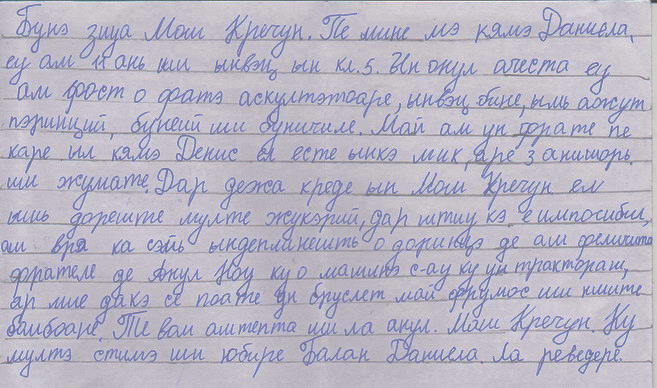 Бунэ зиуа Мош Кречун. Пе мине мэ кямэ Даниела,
еу ам 11 ань ши ынвэц ын кл. 5. Ын онул ачеста еу
ам фост о фатэ аскултэтоаре, ынвэц бине, ымь ажут
пэринций, бунеий ши буничиле. Май ам ун фрате пе
каре ыл кямэ Денис ел есте ынкэ мик, аре 3 анишорь
ши жумате. Дар дежа креде ын Мош Кречун ел
ышь дореште мулте жукэрий, дар штиу кэ е импосибил,
ам вря ка сэйь ындеплинешть о доринцэ де ам феличита
фрателе де Анул Ноу ку о машинэ с-ау ку ун тракторащ,
ар мие дакэ се поате ун бруслет май фрумос ши ниште
бомбоане. Те вом аштепта ши ла анул. Мош Кречун. Ку
мултэ стимэ ши юбире Балан Даниела. Ла реведере.